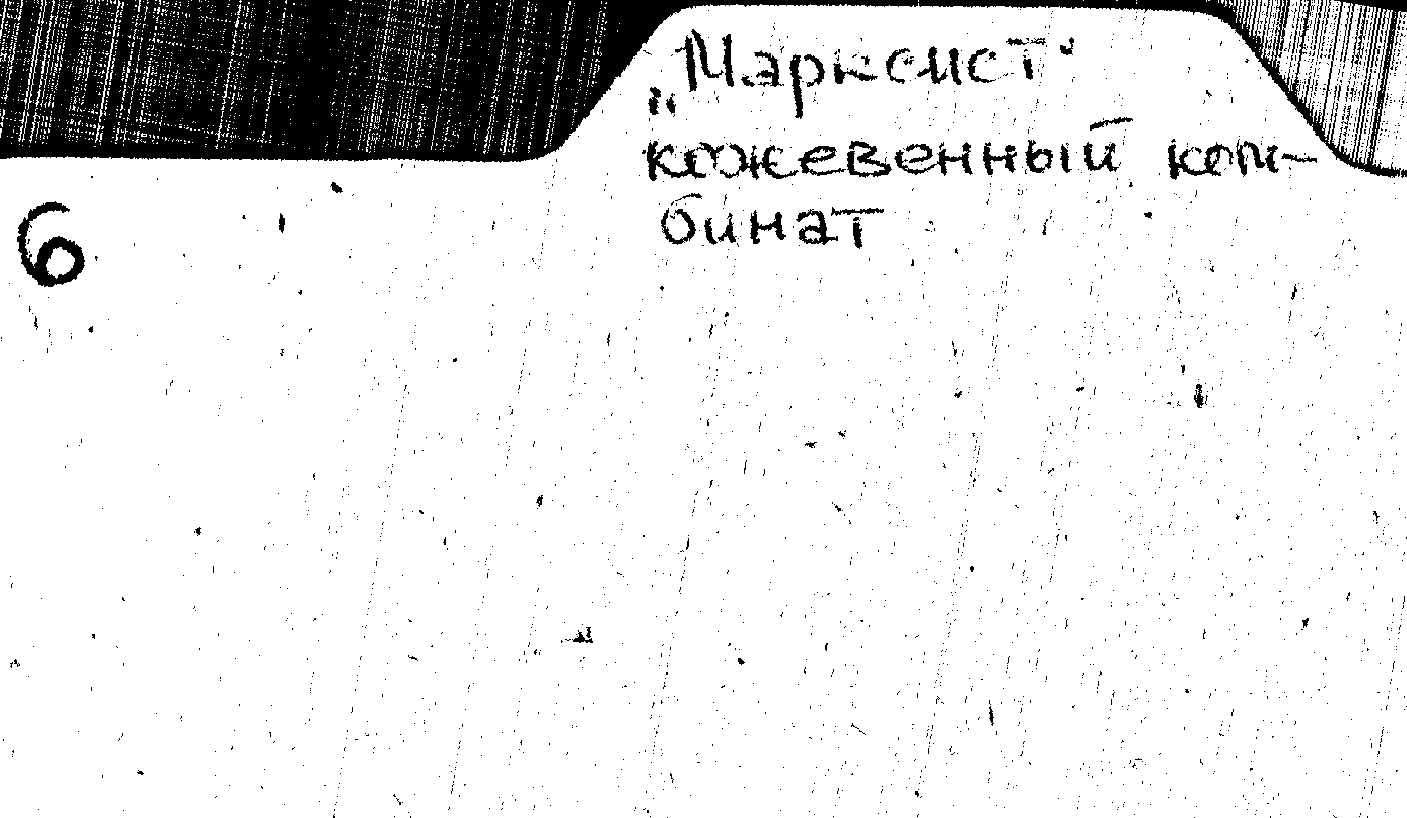 „Марксист“
кожевенный ком-
бинат
6